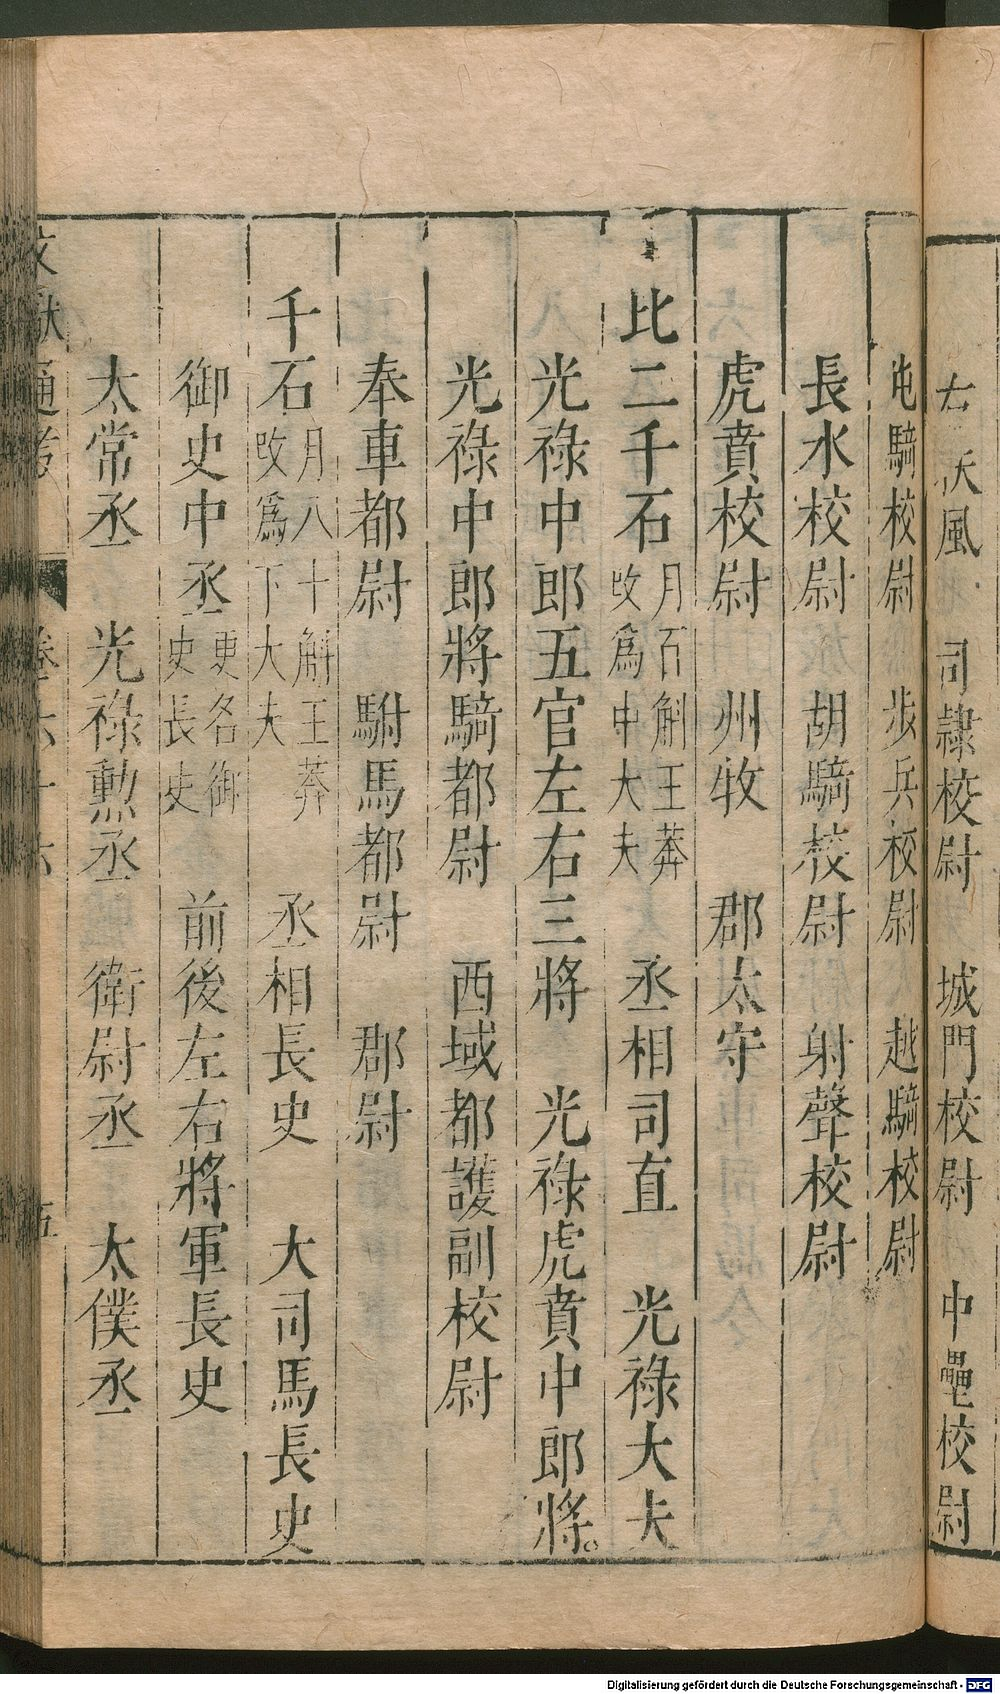 右扶風　司隸校尉　城門校尉　中壘校尉
屯騎校尉　步兵校尉　越騎校尉
長水校尉　胡騎校尉　射聲校尉
虎賁校尉　州牧　郡太守
比二千石月百斛王莽改爲中大夫　丞相司直　光祿大夫
光祿中郎五官左右三將　光祿虎賁中郎將。
光祿中郎將騎都尉　西域都護副校尉
奉車都尉　駙馬都尉　郡尉
千石月八十斛王莽改爲下大夫　丞相長史　大司馬長史
御史中丞更名御史長史　前後左右將軍長史
太常丞　光祿勳丞　衛尉丞　太僕丞
文獻通考　卷六十六　五
Digitalisierung gefördert durch die Deutsche Forschungsgemeinschaft - DFG